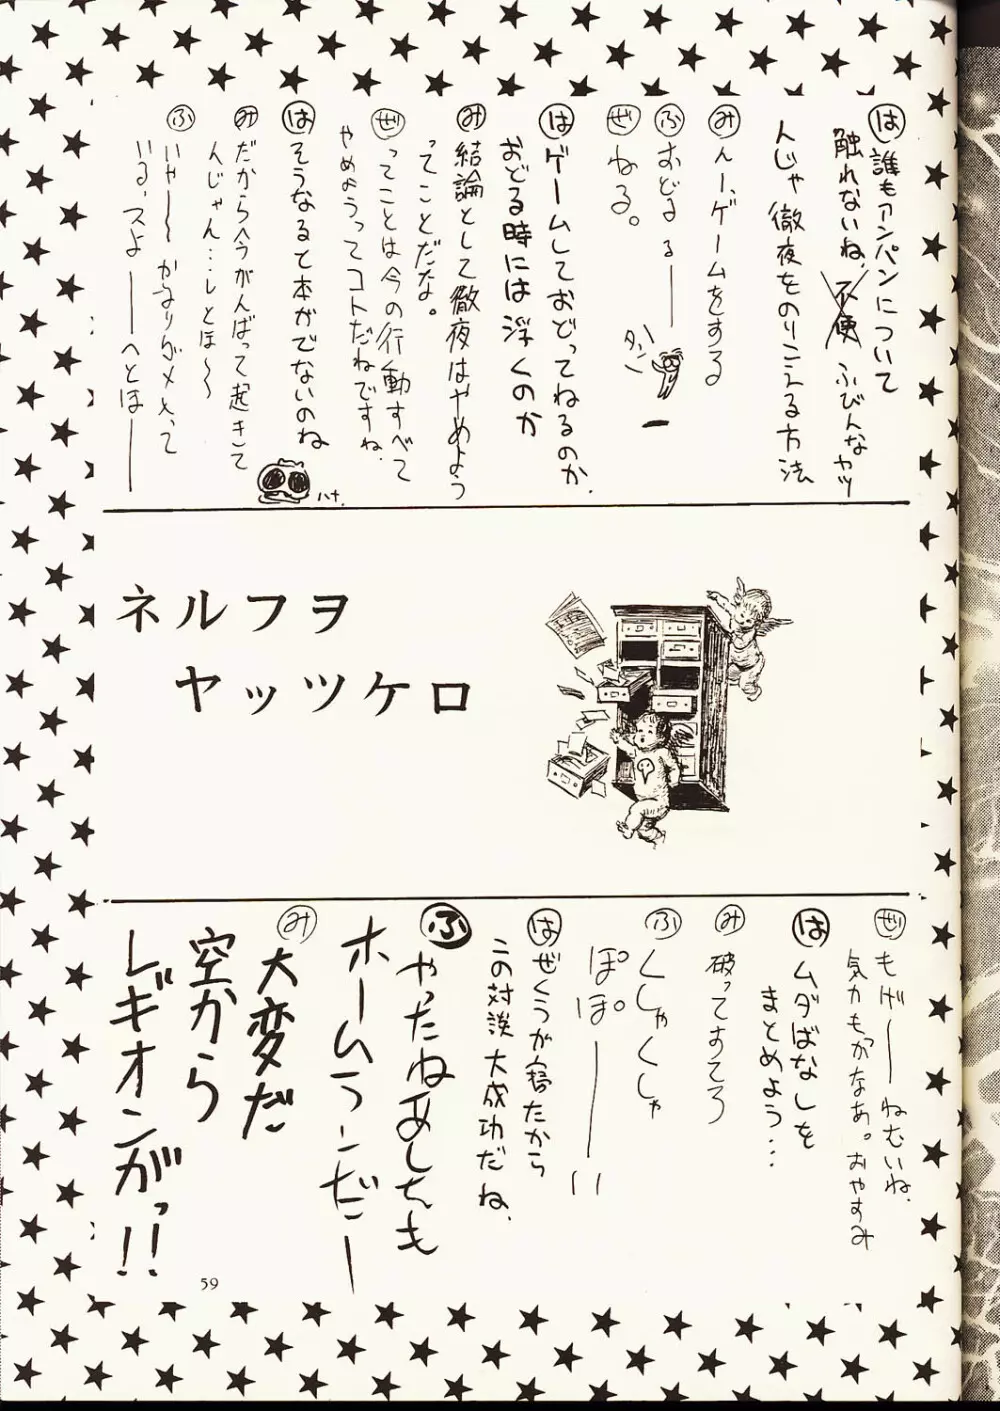 は 誰もアンパンについて
触れないね、不便 ふびんなヤツ
んじゃ徹夜をのりこえる方法
み んー、ゲームをする
ふ おどるるー
ぜ ねる。
タン
は ゲームしておどってねるのか、
おどる時には浮くのか
み 結論として徹夜はやめよう
ってことだな。
ぜ ってことは今の行動すべて
やめようってコトだねですね、
は そうなると本がでないのね
み だから今がんばって起きて
んじゃん…しとほ〜〜
ふ いやー〜かなりダメ入って
いるっスよーーへとほーー
ハナ.
ネルフヲ
ヤッツケロ
ぜ もげーーねむいね、
気力もっかなあ。おやすみ
は ムダばなしを
まとめよう…
み 破ってすてろ
ふ くしゃくしゃ
ぽぽーーい
は ぜくうが寝たから
この対談大成功だね、
ふ やったねあしたも
ホームランだー
み 大変だ
空から
レギオンがっ!!
59